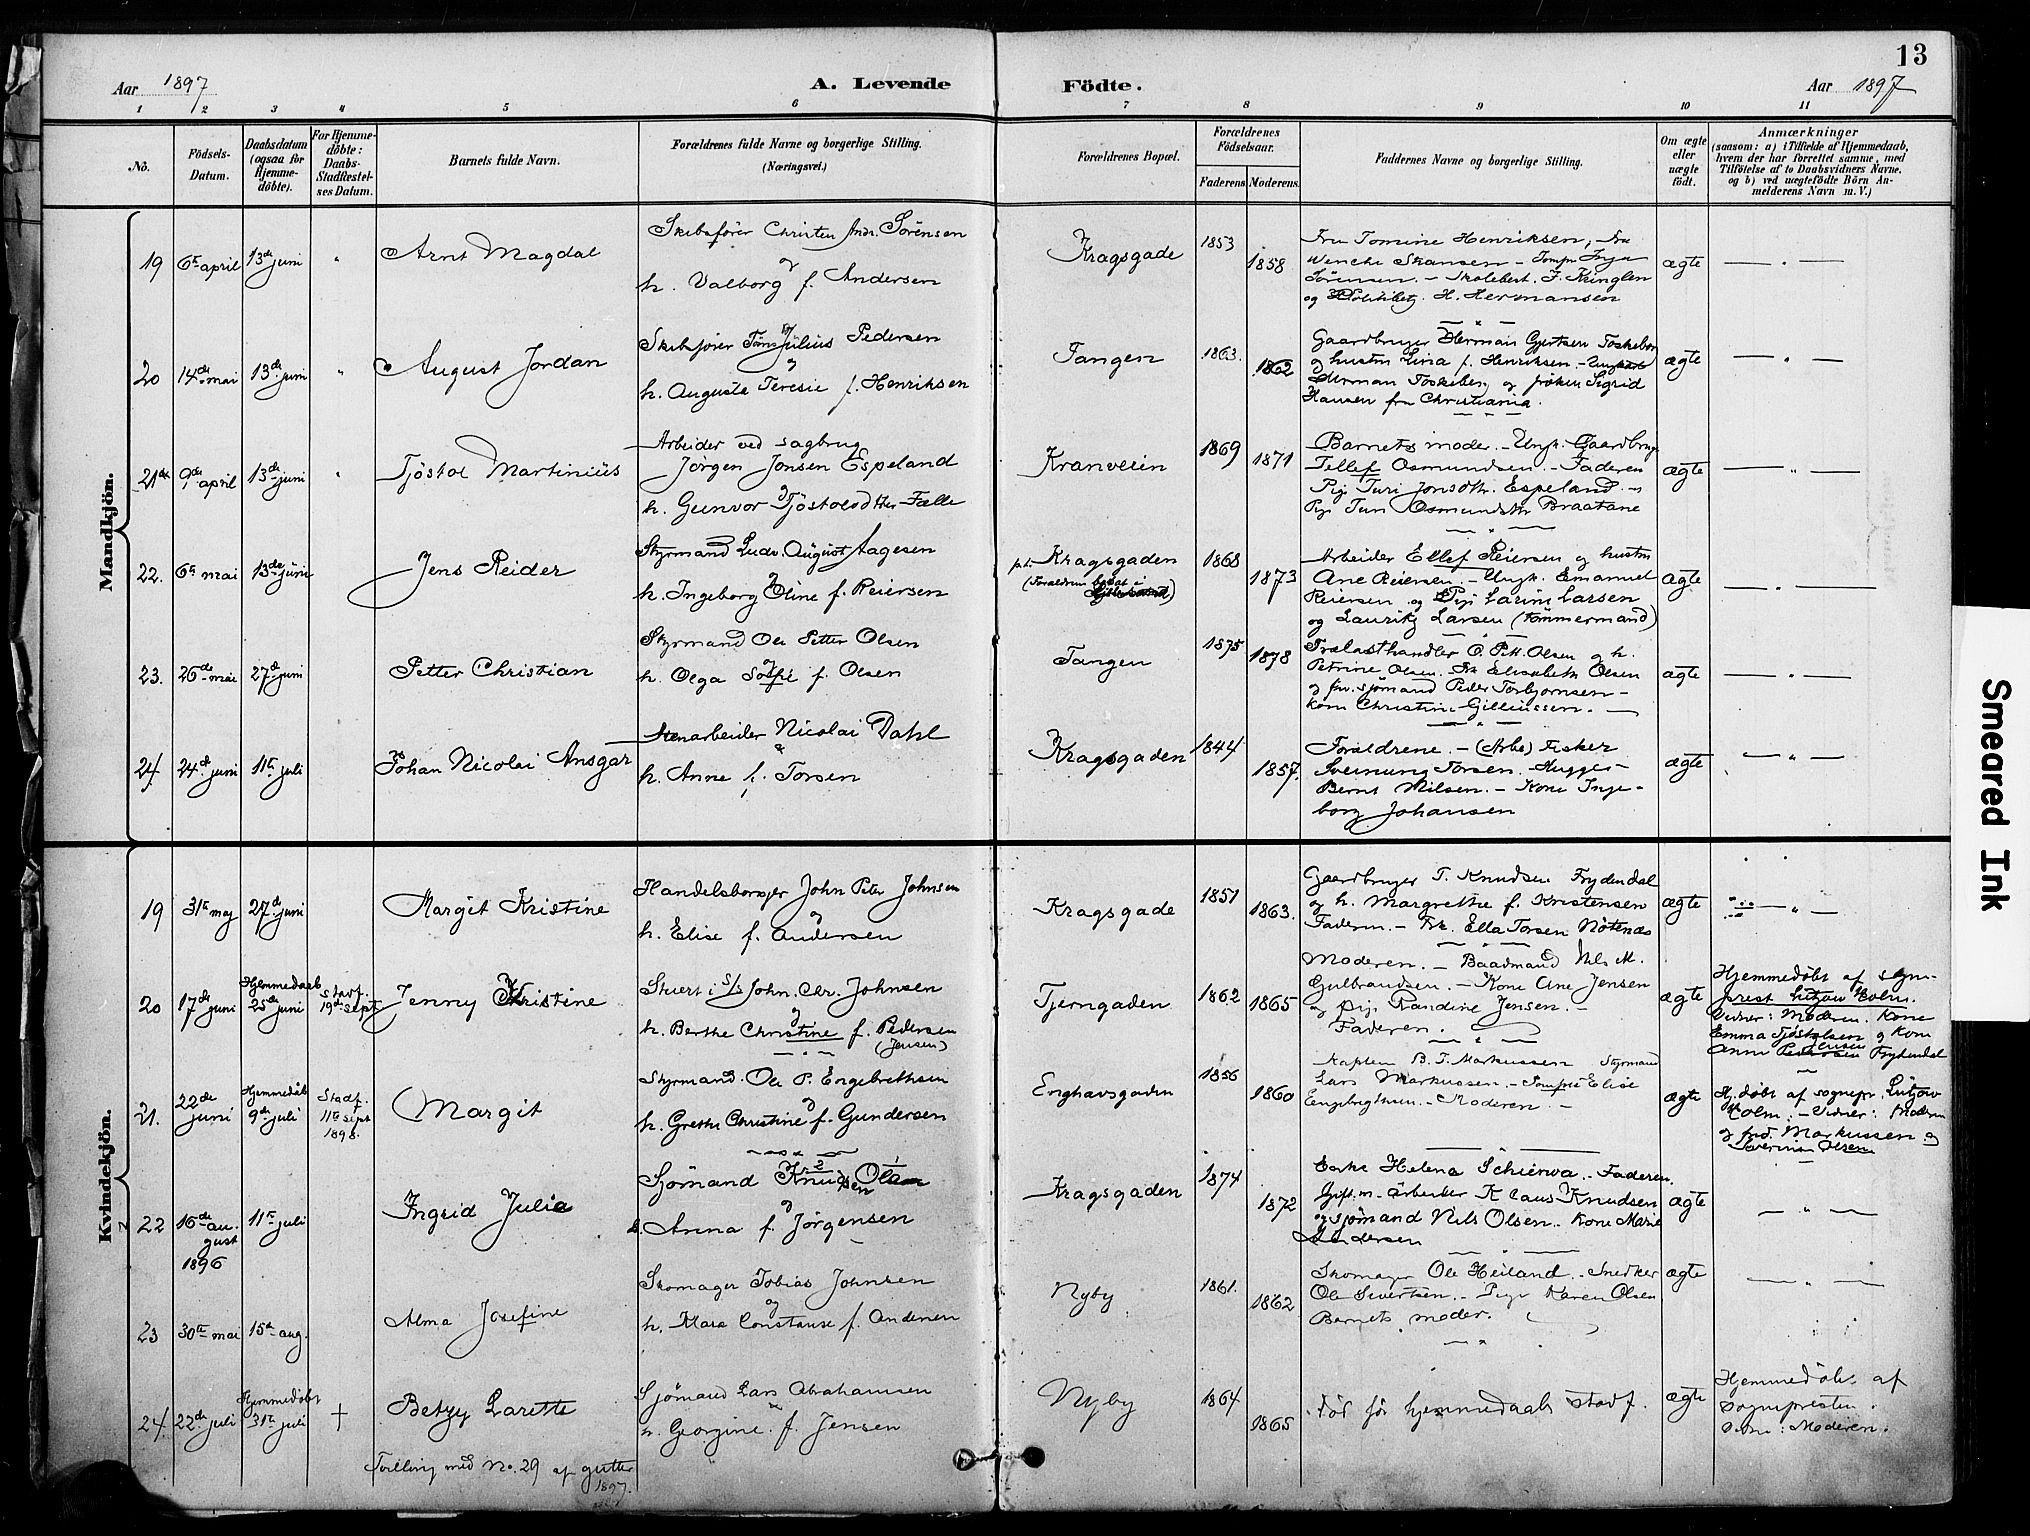 13
Aar 1897
A. Levende Födte.
Aar 1897
1 2 3 4 5 6 7 8 9 10 11
No.
Födsels-Datum.
Daabsdatum (ogsaa for Hjemme-döbte).
For Hjemme-döbte: Daabs-Stadfæstel-ses Datum.
Barnets fulde Navn.
Forældrenes fulde Navne og borgerlige Stilling.
(Næringsvei.)
Forældrenes Bopæl.
Forældrenes Födselsaar.
Faderens
Moderens.
Faddernes Navne og borgerlige Stilling.
Om ægte eller uægte födt.
Anmærkninger
(saasom: a) i Tilfælde af Hjemmedaab,
hvem der har forrettet samme, med
Tilföielse af to Daabsvidners Navne.
og b) ved uægtefödte Börn An-
melderens Navn m. V.)
Mandkjön.
19 6te april 13de juni " Arnt Magdal
Skibsfører Christen Andr. Sörensen
og
h. Valborg f. Andersen
Kragsgade 1853 1858
Fru Tomine Henriksen, fru
Wenche Skansen - Jomfr Inga
Sörensen. - Skolebest. F. Kringlen
og H. Hermansen
ægte — " —
20 14de mai 13de juni " August Jordan
Skibsfører Tönnes Julius Pedersen
og
h. Augusta Teresie f. Henriksen
Tangen 1863. 1862
Gaardbruger Herman Gjertsen Toskeberg
og hustru Lina f. Henriksen - Ungkarl
Herman Toskeberg og frøken Sigrid
Hansen fra Christiania.
ægte — " —
21de 9de april 13de juni " Tjöstol Martinius
Arbeider ved sagbrug
Jörgen Jonsen Espeland
og
h. Gunvor Tjöstolsdtter Fælle
Kranveien 1869 1871
Barnets moder. - Ungk. Gaardbrug
Tellef Osmundsen. - Faderen
Pige Turi Jonsdtr. Espeland -
Pige Turi Osmundsdtr Braatane
ægte — " —
22. 6te mai 13de juni Jens Reider
Styrmand Ludv. August Aagesen
og
h. Ingeborg Oline f. Reiersen
p.t. Kragsgaden
(Forældrene bosat i
1868 1873
Arbeider Ellef Reiersen og hustru
Ane Reiersen. - Ungk. Emanuel
Reiersen og Pige Larine Larsen
og Lauritz Larsen (tömmermand)
ægte — " —
23. 26de mai 27de juni Petter Christian
Styrmand Ole Petter Olsen
og
h. Olga Sofie f. Olsen
Tangen 1875 1878
Trælasthandler O. Pett. Olsen og h.
Petrine Olsen. Frk Elisabeth Olsen
og fhv. sjömand Peder Torbjørnsen -
kone Christine Gilliussen. -
ægte — " —
24. 24de juni 11te juli Johan Nicolai Ansgar
Stenarbeider Nicolai Dahl
&
h. Anne f. Torsen
Kragsgaden 1844 1857.
Forældrene. - (Arb.) Fisker
Sveinung Torsen. Hugges-
Bernt Nilsen. - Kone Inge-
borg Johansen
ægte — " —
Kvindekjön.
19 31te maj 27de juni Margit Kristine
Handelsborger John Peter Johnsen
og
h. Elise f. Andersen
Kragsgade 1851 1863.
Gaardbruger T. Knudsen Frydendal
og h. Margrethe f. Kristensen
Faderen. - Frk. Ella Torsen Nötenæs
ægte — " —
20 17de juni Hjemmedaab 25de juni Stadf. 19de sept. Jenny Kristine
Stuert i S/S John. Chr. Johnsen
og
h. Berthe Christine f. Pedersen
(Jensen)
Tjerngaden 1862 1865
Moderen. - Baadmand Nils M.
Gulbrandsen. - Kone Ane Jensen
og pige Randine Jensen. -
Faderen.
ægte
Hjemmedöbt af sogne-
prest Lutzow Holm.
Vidner: Moderen. Kone
Emma Tjöstolsen og Kone
Anne Frydendal
21. 22de juni Hjemmedöbt 9de juli Stadf. 11te sept 1898. Margit
Styrmand Ole P. Engebrethsen
og
h. Grethe Christine f. Gundersen
Enghavsgaden 1856 1860
Kaptein B. T. Markussen Styrmand
Lars Markussen. - Jomfru Elise
Engebrigtsen. - Moderen. -
ægte
Hj.døbt af sognepr. Lützow
Holm. - Vidner: Moderen
og frd. Markussen og
Severine Olsen
22 16de au-gust 1896 11te juli Ingrid Julie
Sjömand Knud Olsen
og
h. Anna f. Jörgensen
Kragsgaden 1874 1872
Enke Helena Schierwa. Faderen.
Gift.m. arbeider Klaus Knudsen
og sjömand Nils Olsen. Kone Marie
Andersen
ægte — " —
23 30te mai 15de aug. Alma Josefine
Skomager Tobias Johnsen
og
h. Mara Constanse f. Andersen
Nyby 1861. 1862
Skomager Ole Heiland. - Snedker
Ole Sivertsen. - Pige Karen Olsen
Barnets moder.
ægte — " —
24. 22de juli Hjemmedöbt 31te juli † Betzy Larette
Sjömand Lars Abrahamsen
h. Georgine f. Jensen
Nyby 1864 1865
Död för hjemmedaabs stadf.
ægte
Hjemmedöbt af
Sognepresten.
Vidne: Moderen.
Tvilling med No. 29 af gutter
1897.
Smeared Ink